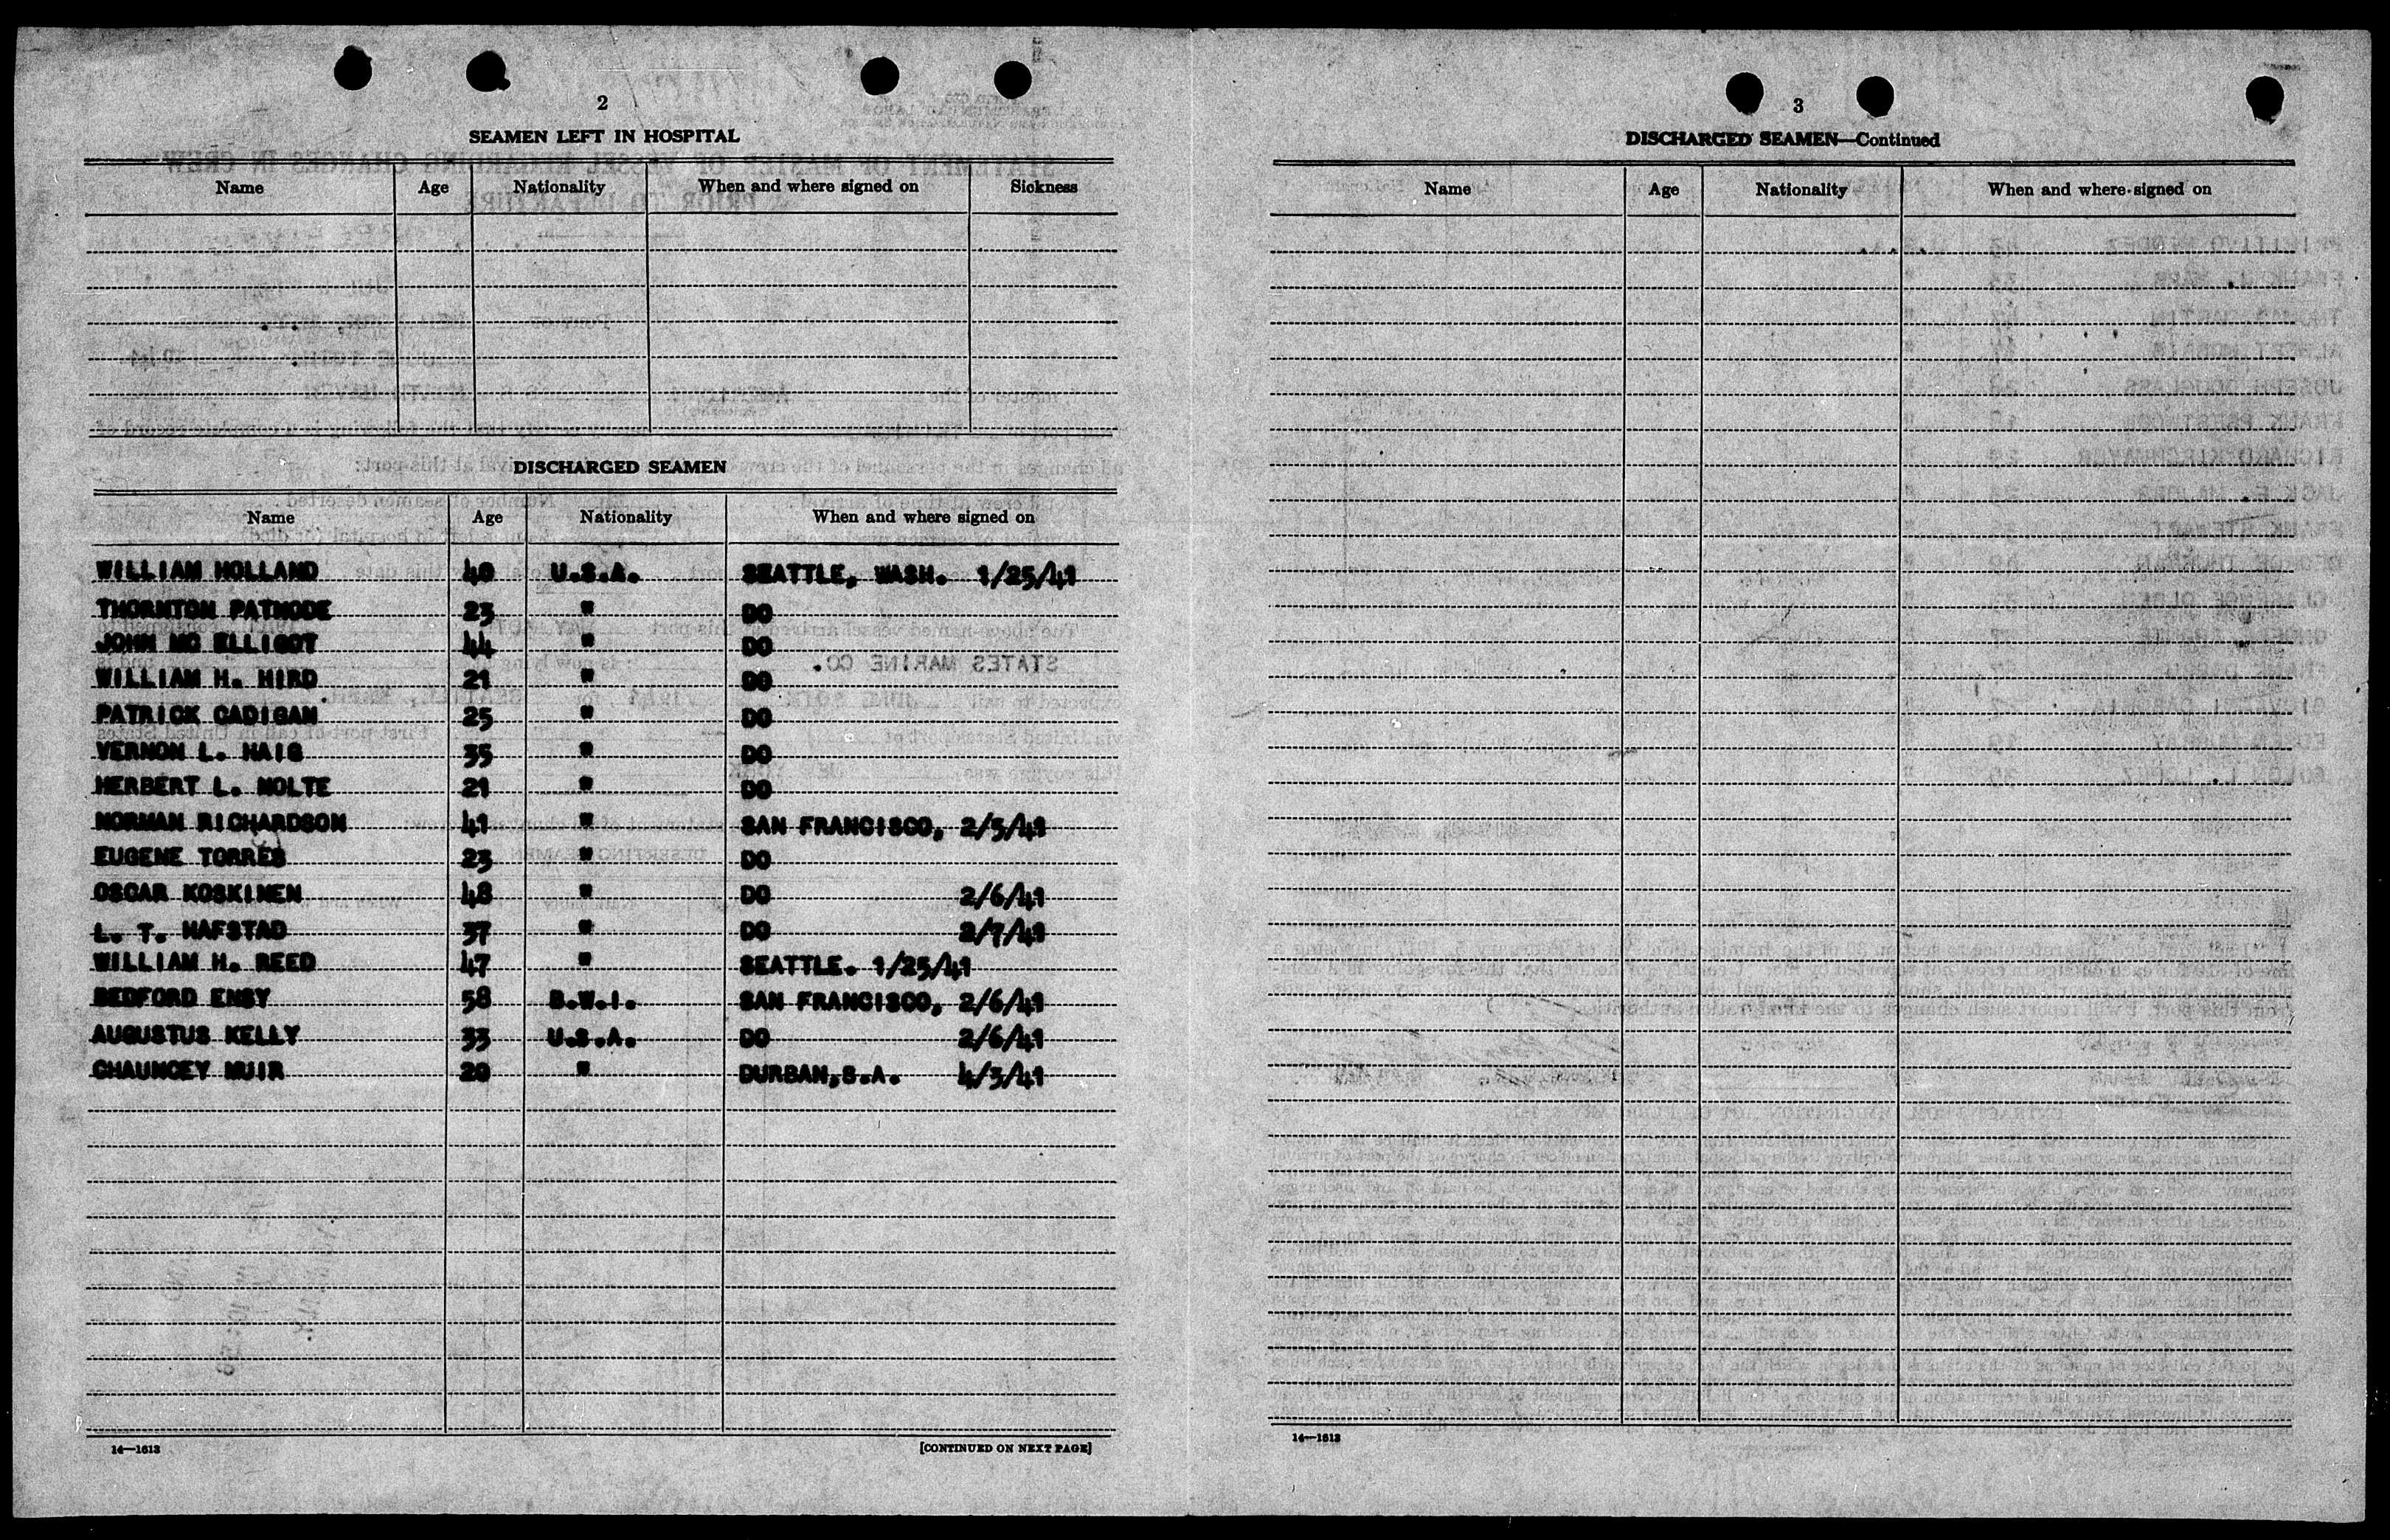 2
SEAMEN LEFT IN HOSPITAL
Name Age Nationality When and where signed on Sickness
DISCHARGED SEAMEN
Name Age Nationality When and where signed on
WILLIAM HOLLAND 40 U.S.A. SEATTLE, WASH. 1/25/41
THORNTON PATNODE 23 " DO
JOHN MC ELLIGOT 44 " DO
WILLIAM H. HIRD 21 " DO
PATRICK CADIGAN 25 " DO
VERNON L. HAIG 35 " DO
HERBERT L. NOLTE 21 " DO
NORMAN RICHARDSON 41 " SAN FRANCISCO, 2/5/41
EUGENE TORRES 23 " DO
OSCAR KOSKINEN 48 " DO 2/6/41
L. T. HAFSTAD 37 " DO 2/7/41
WILLIAM H. REED 47 " SEATTLE. 1/25/41
BEDFORD ENSY 58 B.W.I. SAN FRANCISCO, 2/6/41
AUGUSTUS KELLY 33 U.S.A. DO 2/6/41
CHAUNCEY MUIR 20 " DURBAN,S.A. 4/3/41
14—1613 [CONTINUED ON NEXT PAGE]
3
DISCHARGED SEAMEN—Continued
Name Age Nationality When and where signed on
14—1613